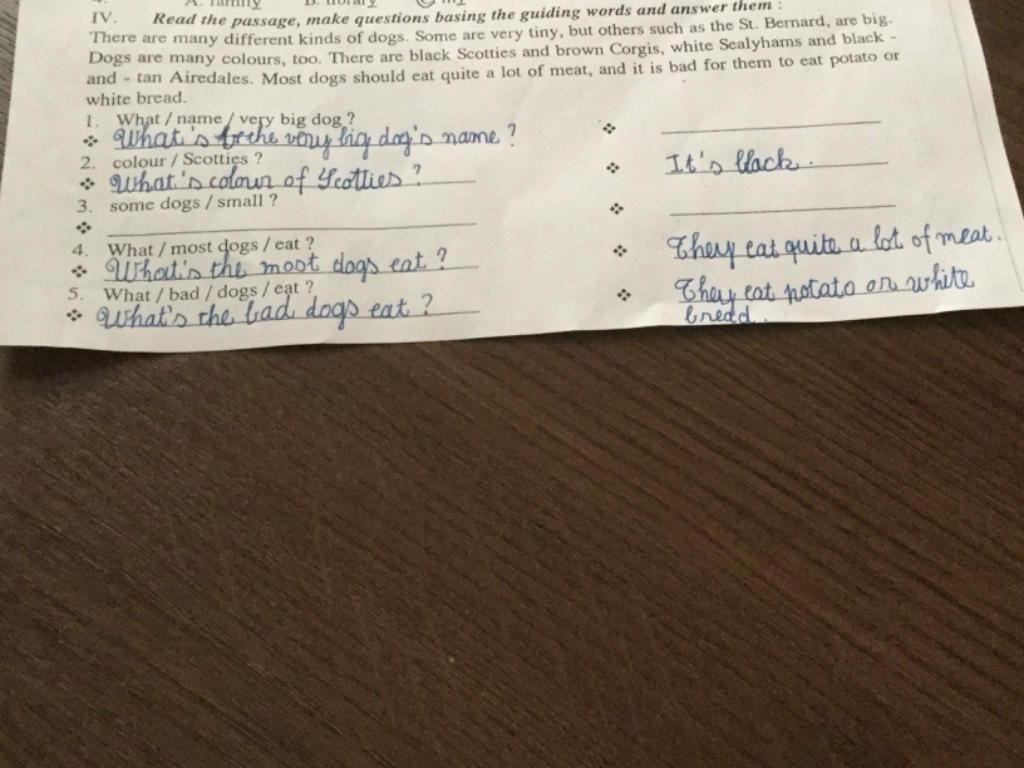 A. family B. library C my
IV. Read the passage, make questions basing the guiding words and answer them :
There are many different kinds of dogs. Some are very tiny, but others such as the St. Bernard, are big.
Dogs are many colours, too. There are black Scotties and brown Corgis, white Sealyhams and black -
and - tan Airedales. Most dogs should eat quite a lot of meat, and it is bad for them to eat potato or
white bread.
1. What / name / very big dog ?
What's the very big dog's name ?
2. colour / Scotties ?
What's colour of Scotties ? It's black.
3. some dogs / small ?
4. What / most dogs / eat ?
What's the most dogs eat ? They eat quite a lot of meat.
5. What / bad / dogs / eat ?
What's the bad dogs eat ? They eat potato or white
bread.